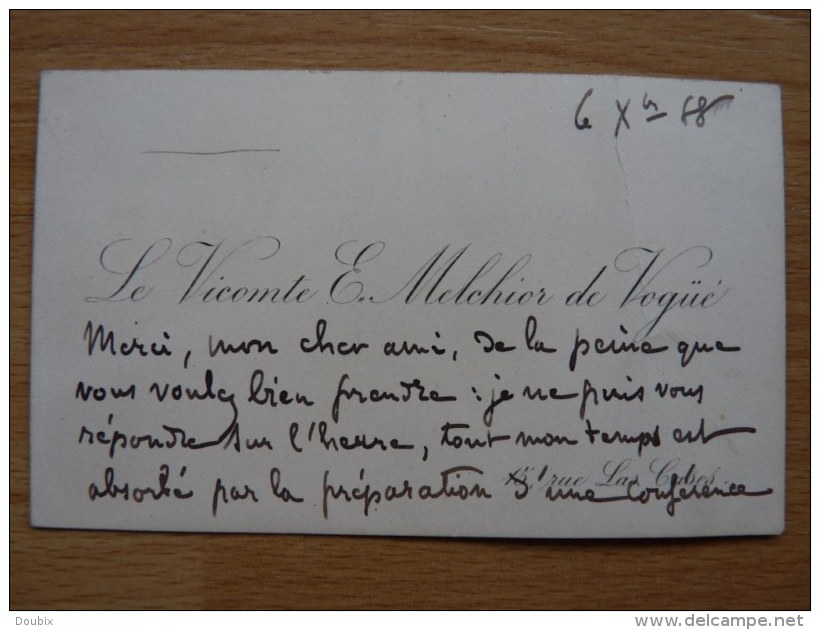 6 Xbr 88
Le Vicomte E. Melchior de Vogüé
Merci, mon cher ami, de la peine que
vous voulez bien prendre : je ne puis vous
répondre sur l'heure, tout mon temps est
absorbé par la préparation d'une conférence
15, rue Las Cases.
Doubix
www.delcampe.net